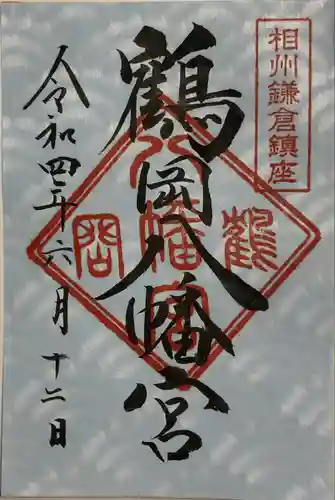 相州鎌倉鎮座
鶴岡八幡宮
令和四年六月十二日
鶴
八幡宮
岡